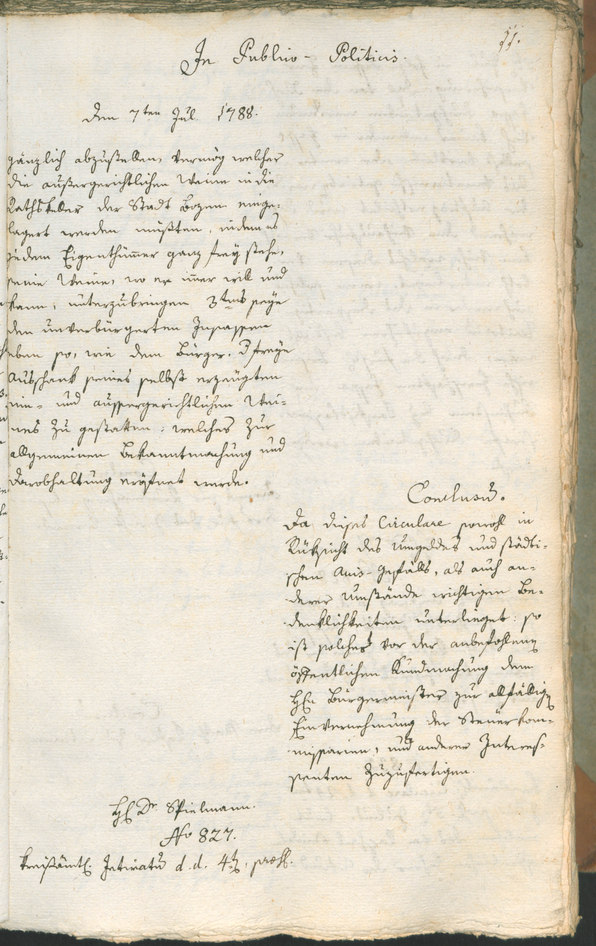 51.
In Publico-Politicis.
Den 7ten Jul. 1788.
gänzlich abzustellen, vermög welcher
die aussergerichtlichen Weine in die
Rathskeller der Stadt Bozen einge-
lagert werden müßten, indem es
jedem Eigenthümer ganz frey stehe,
seine Weine, wo er imer will und
kann, unterzubringen 3tens seye
den unverbürgerten Insassen
eben so, wie dem Bürger, d. freye
Ausschank seines selbst erzeugten
inn- und aussergerichtlichen Wei-
nes zu gestatten: welches zur
allgemeinen Bekanntmachung und
Darobhaltung eröfnet werde.
Conclusum.
Da dieses Circulare sowohl in
Rüksicht des Umgeldes und städti-
schen Anis-Gefälls, als auch an-
derer Umstände wichtigen Be-
denklichkeiten unterlieget: so
ist solches vor der anbefohlenen
öffentlichen Kundmachung dem
Hn Bürgermeister zur allfälligen
Einvernehmung der Steuerkom-
missarien, und anderer Interes-
senten zuzufertigen.
Hn Dr Spielmann.
No 827.
Kreisämtl. Intimatum d. d. 4t, praes.